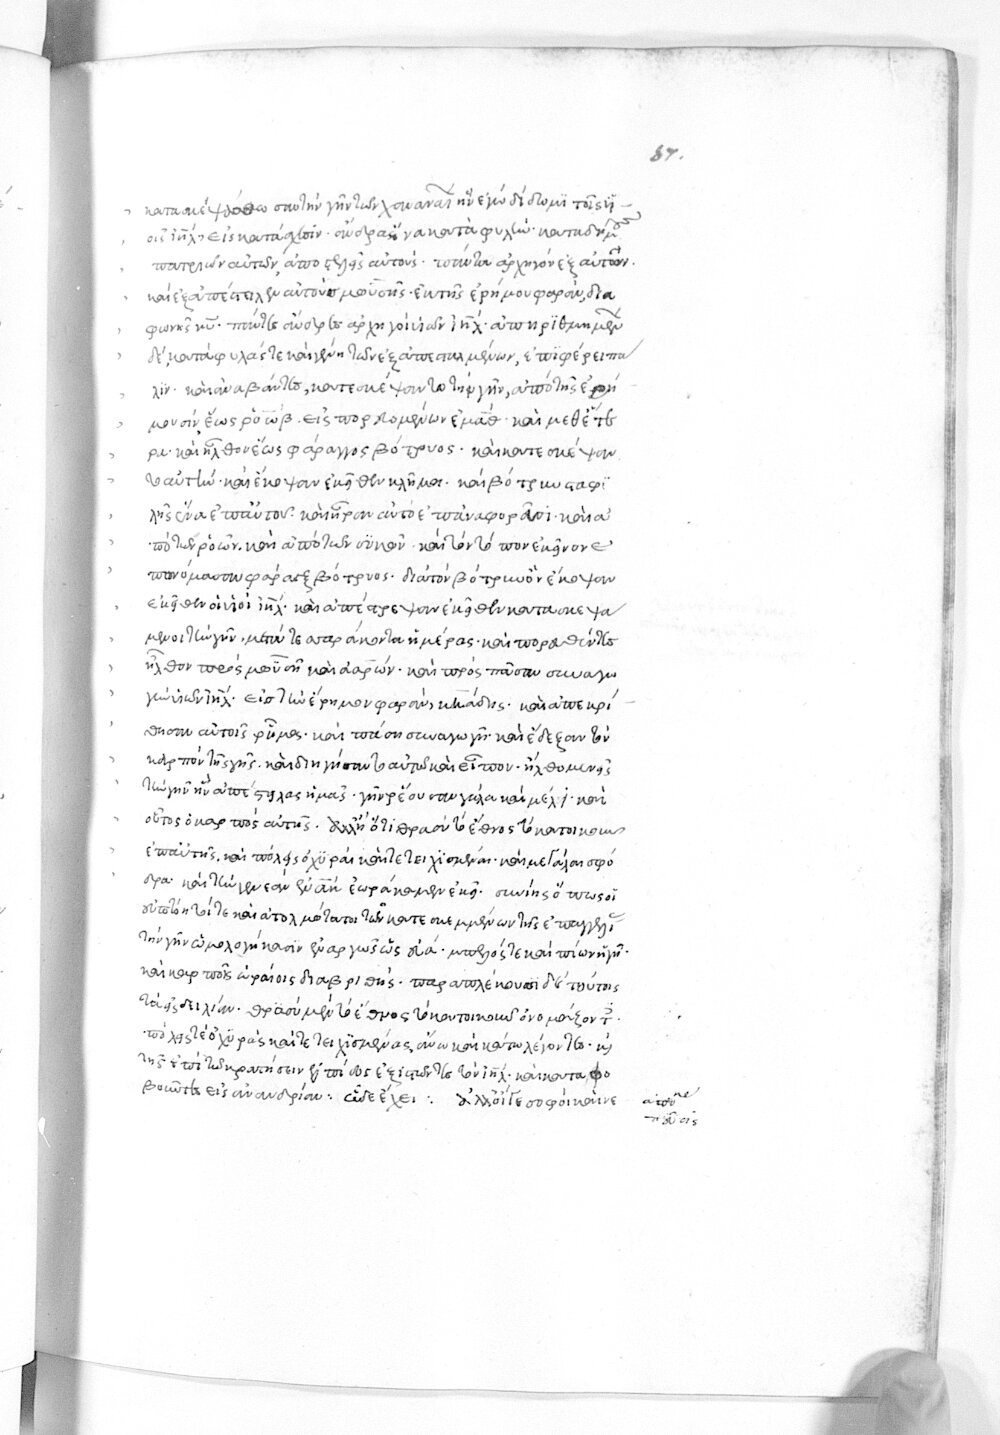 87.
κατασκεψάσθωσαν τὴν γῆν τῶν χαναναί ἣν ἐγὼ δίδωμι τοῖς υἱ
οῖς ἰηλ εἰς κατάσχεσιν · ἄνδρα ἕνα κατὰ φυλὴν · κατὰ δήμους
πατριῶν αὐτῶν, ἀποστελεῖς αὐτοὺς · πάντα ἀρχηγὸν ἐξ αὐτῶν ·
καὶ ἐξαπέστειλεν αὐτοὺς μωϋσῆς · ἐκ τῆς ἐρήμου φαρὰν, διὰ
φωνῆς κυ · πάντες ἄνδρες ἀρχηγοὶ υἱῶν ἰηλ · ἀπηριθμημένων
δὲ, κατὰ φυλάς τε καὶ γένη τῶν ἐξαπεσταλμένων, ἐπιφέρει πά
λιν · καὶ ἀναβάντες, κατεσκέψαντο τὴν γῆν, ἀπὸ τῆς ἐρήμου
σὶν, ἕως ῥοὼβ · εἰσπορευομένων ἐμὰθ · καὶ μεθ' ἕτε
ρα · καὶ ἦλθον ἕως φάραγγος βότρυος · καὶ κατεσκέψαν
το αὐτὴν · καὶ ἔκοψαν ἐκεῖθεν κλῆμα · καὶ βότρυν σταφυ
λῆς ἕνα ἐπ' αὐτοῦ · καὶ ἦραν αὐτὸ ἐπ' ἀναφορεῦσι · καὶ ἀ
πὸ τῶν ῥοῶν · καὶ ἀπὸ τῶν συκῶν · καὶ τὸν τόπον ἐκεῖνον ἐ
πωνόμασαν φάραγξ βότρυος · διὰ τὸν βότρυν ὃν ἔκοψαν
ἐκεῖθεν οἱ υἱοὶ ἰηλ · καὶ ἀπέστρεψαν ἐκεῖθεν κατασκεψά
μενοι τὴν γῆν, μετὰ τεσσαράκοντα ἡμέρας · καὶ πορευθέντες
ἦλθον πρὸς μωϋσῆν καὶ ἀαρών · καὶ πρὸς πᾶσαν συναγω
γὴν υἱῶν ἰηλ · εἰς τὴν ἔρημον φαρὰν, κάδης · καὶ ἀπεκρί
θησαν αὐτοῖς ῥῆμα · καὶ πάσῃ συναγωγῇ · καὶ ἔδειξαν τὸν
καρπὸν τῆς γῆς · καὶ διηγήσαντο αὐτῶ καὶ εἶπον · ἤλθομεν εἰς
τὴν γῆν ἣν ἀπέστειλας ἡμᾶς · γῆν ῥέουσαν γάλα καὶ μέλι · καὶ
οὗτος ὁ καρπὸς αὐτῆς · ἀλλ' ἢ ὅτι θρασὺ τὸ ἔθνος τὸ κατοικοῦν
ἐπ' αὐτῆς, καὶ πόλεις ὀχυραὶ καὶ τετειχισμέναι · καὶ μεγάλαι σφό
δρα · καὶ τὴν γενεὰν ἐνὰκ ἑωράκαμεν ἐκεῖ · συνίης ὅπως οἱ
τὴν γῆν ὡμολογήκασιν ἐναργῶς ὡς
καὶ καρποῖς ὡραίοις διαβριθής · παραπλέκουσι δὲ τούτοις
τὰ εἰς δειλίαν · θρασὺ μὲν τὸ ἔθνος τὸ κατοικοῦν ὀνομάζοντες ·
πόλεις τὲ ὀχυρὰς καὶ τετειχισμένας, ἄνω καὶ κάτω λέγοντες ·
τῆς ἐπὶ τῶ κρατήσειν ἐλπίδος ἐξιστῶντες τὸν ἰηλ · καὶ καταφο
βοῦντες εἰς ἀνανδρίαν : ὧδε ἔχει : ἀλλ' οἵ γε σοφοὶ καὶ νε